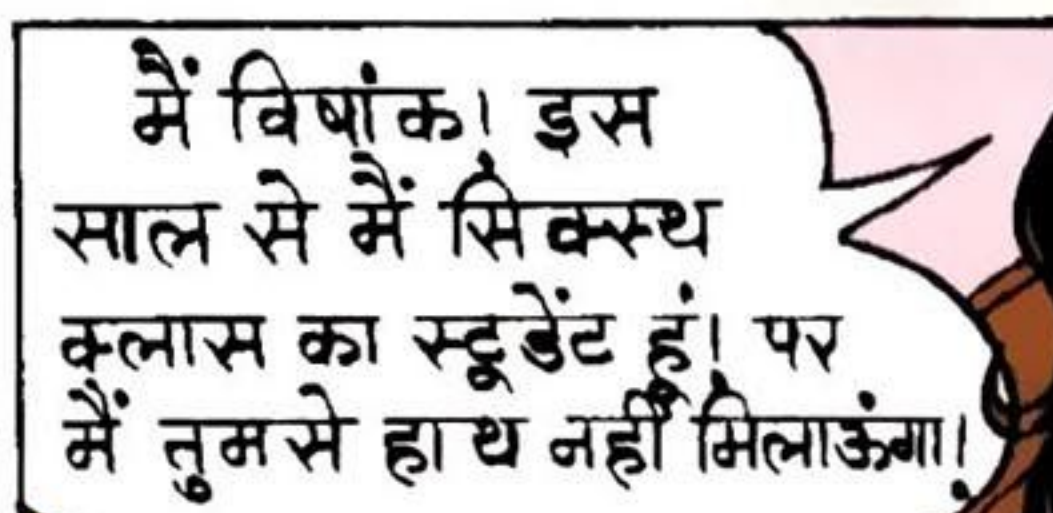 मैं विषांक। इस
साल से मैं सिक्स्थ
क्लास का स्टूडेंट हूं! पर
मैं तुमसे हाथ नहीं मिलाऊंगा!